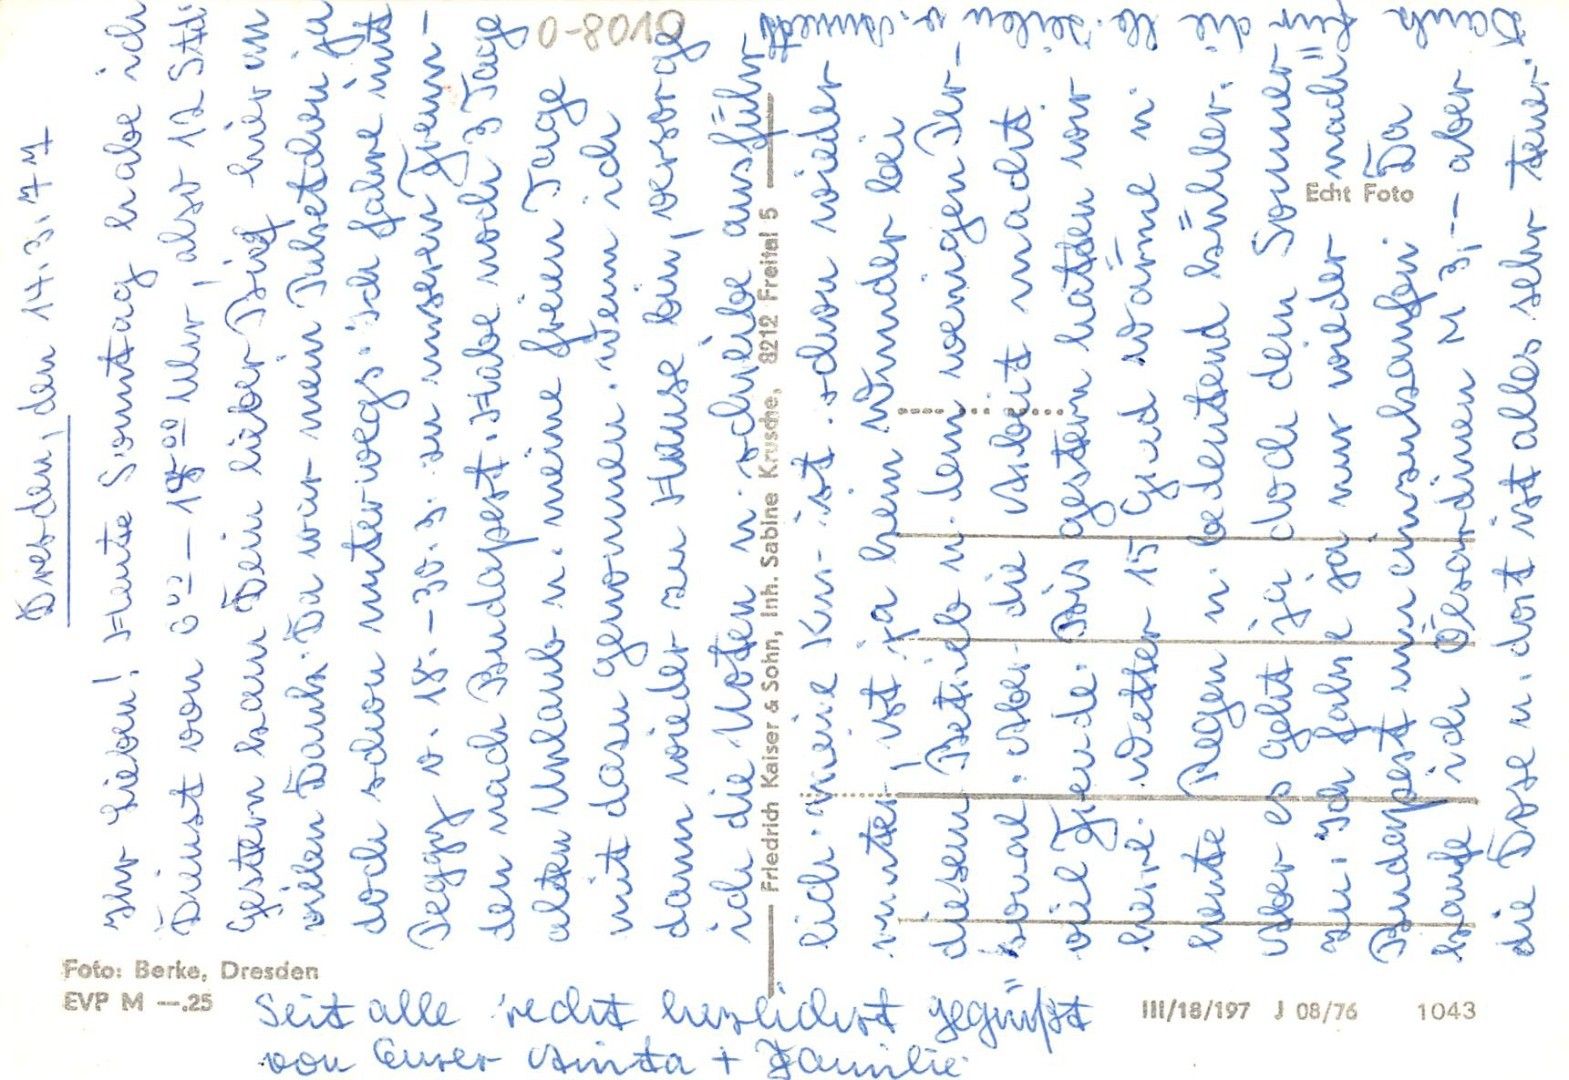 Dresden, den 14.3.77
Ihr Lieben! Heute Sonntag habe ich
Dienst von 6⁰⁰ – 18⁰⁰ Uhr, also 12 Std.
Gestern kam Dein lieber Brief hier an
vielen Dank. Da war mein Päckchen ja
doch schon unterwegs. Ich fahre mit
Peggy v. 18. – 30.3. zu unseren Freun-
den nach Budapest. Habe noch 3 Tage
alten Urlaub u. meine freien Tage
mit dazu genommen. Wenn ich
dann wieder zu Hause bin, versorge
ich die Noten u. schreibe ausführ-
lich. Meine Kur- ist schon wieder
runter, ist ja kein Wunder bei
diesem Betrieb u. dem wenigen Per-
sonal. Aber die Arbeit macht
viel Freude. Bis gestern hatten wir
hier Wetter 15 Grad Wärme u.
heute Regen u. bedeutend kühler.
Aber es geht ja doch dem Sommer
zu. Ich fahre ja nur wieder "nach"
Budapest um einzukaufen. Da
kaufe ich Ölsardinen M 3,– aber
die Dose u. dort ist alles sehr teuer.
Dank für die lb. Zeilen v. Annett
Seit alle recht herzlichst gegrüßt
von Eurer Anita + Familie
0-8010
Echt Foto
Friedrich Kaiser & Sohn, Inh. Sabine Krusche, 8212 Freital 5
Foto: Berke, Dresden
EVP M —.25
III/18/197 J 08/76 1043